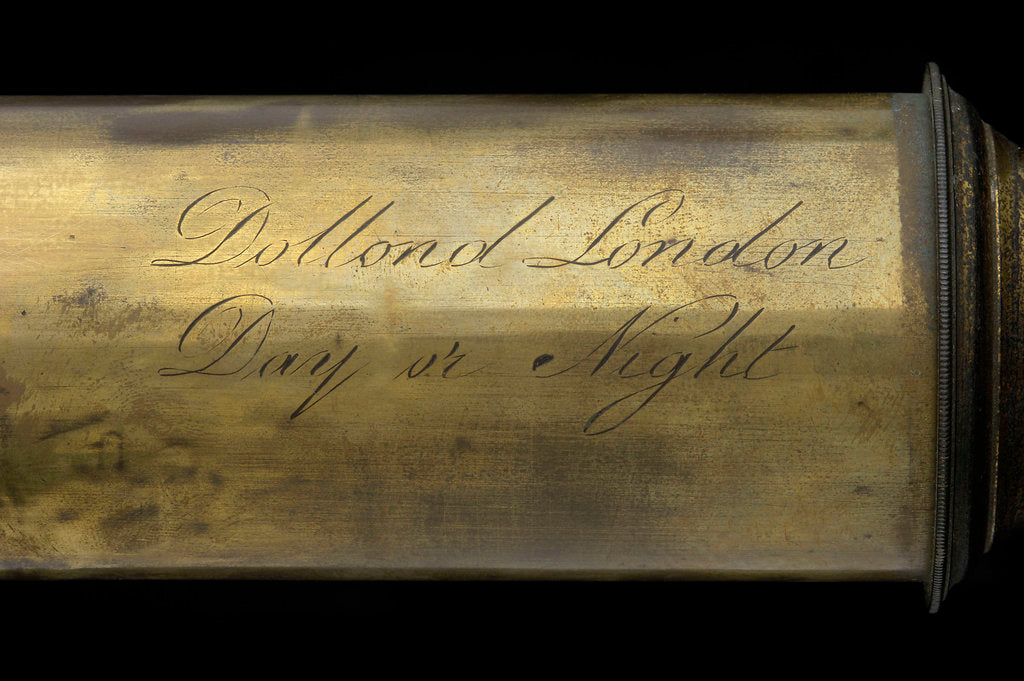 Dollond London
Day or Night